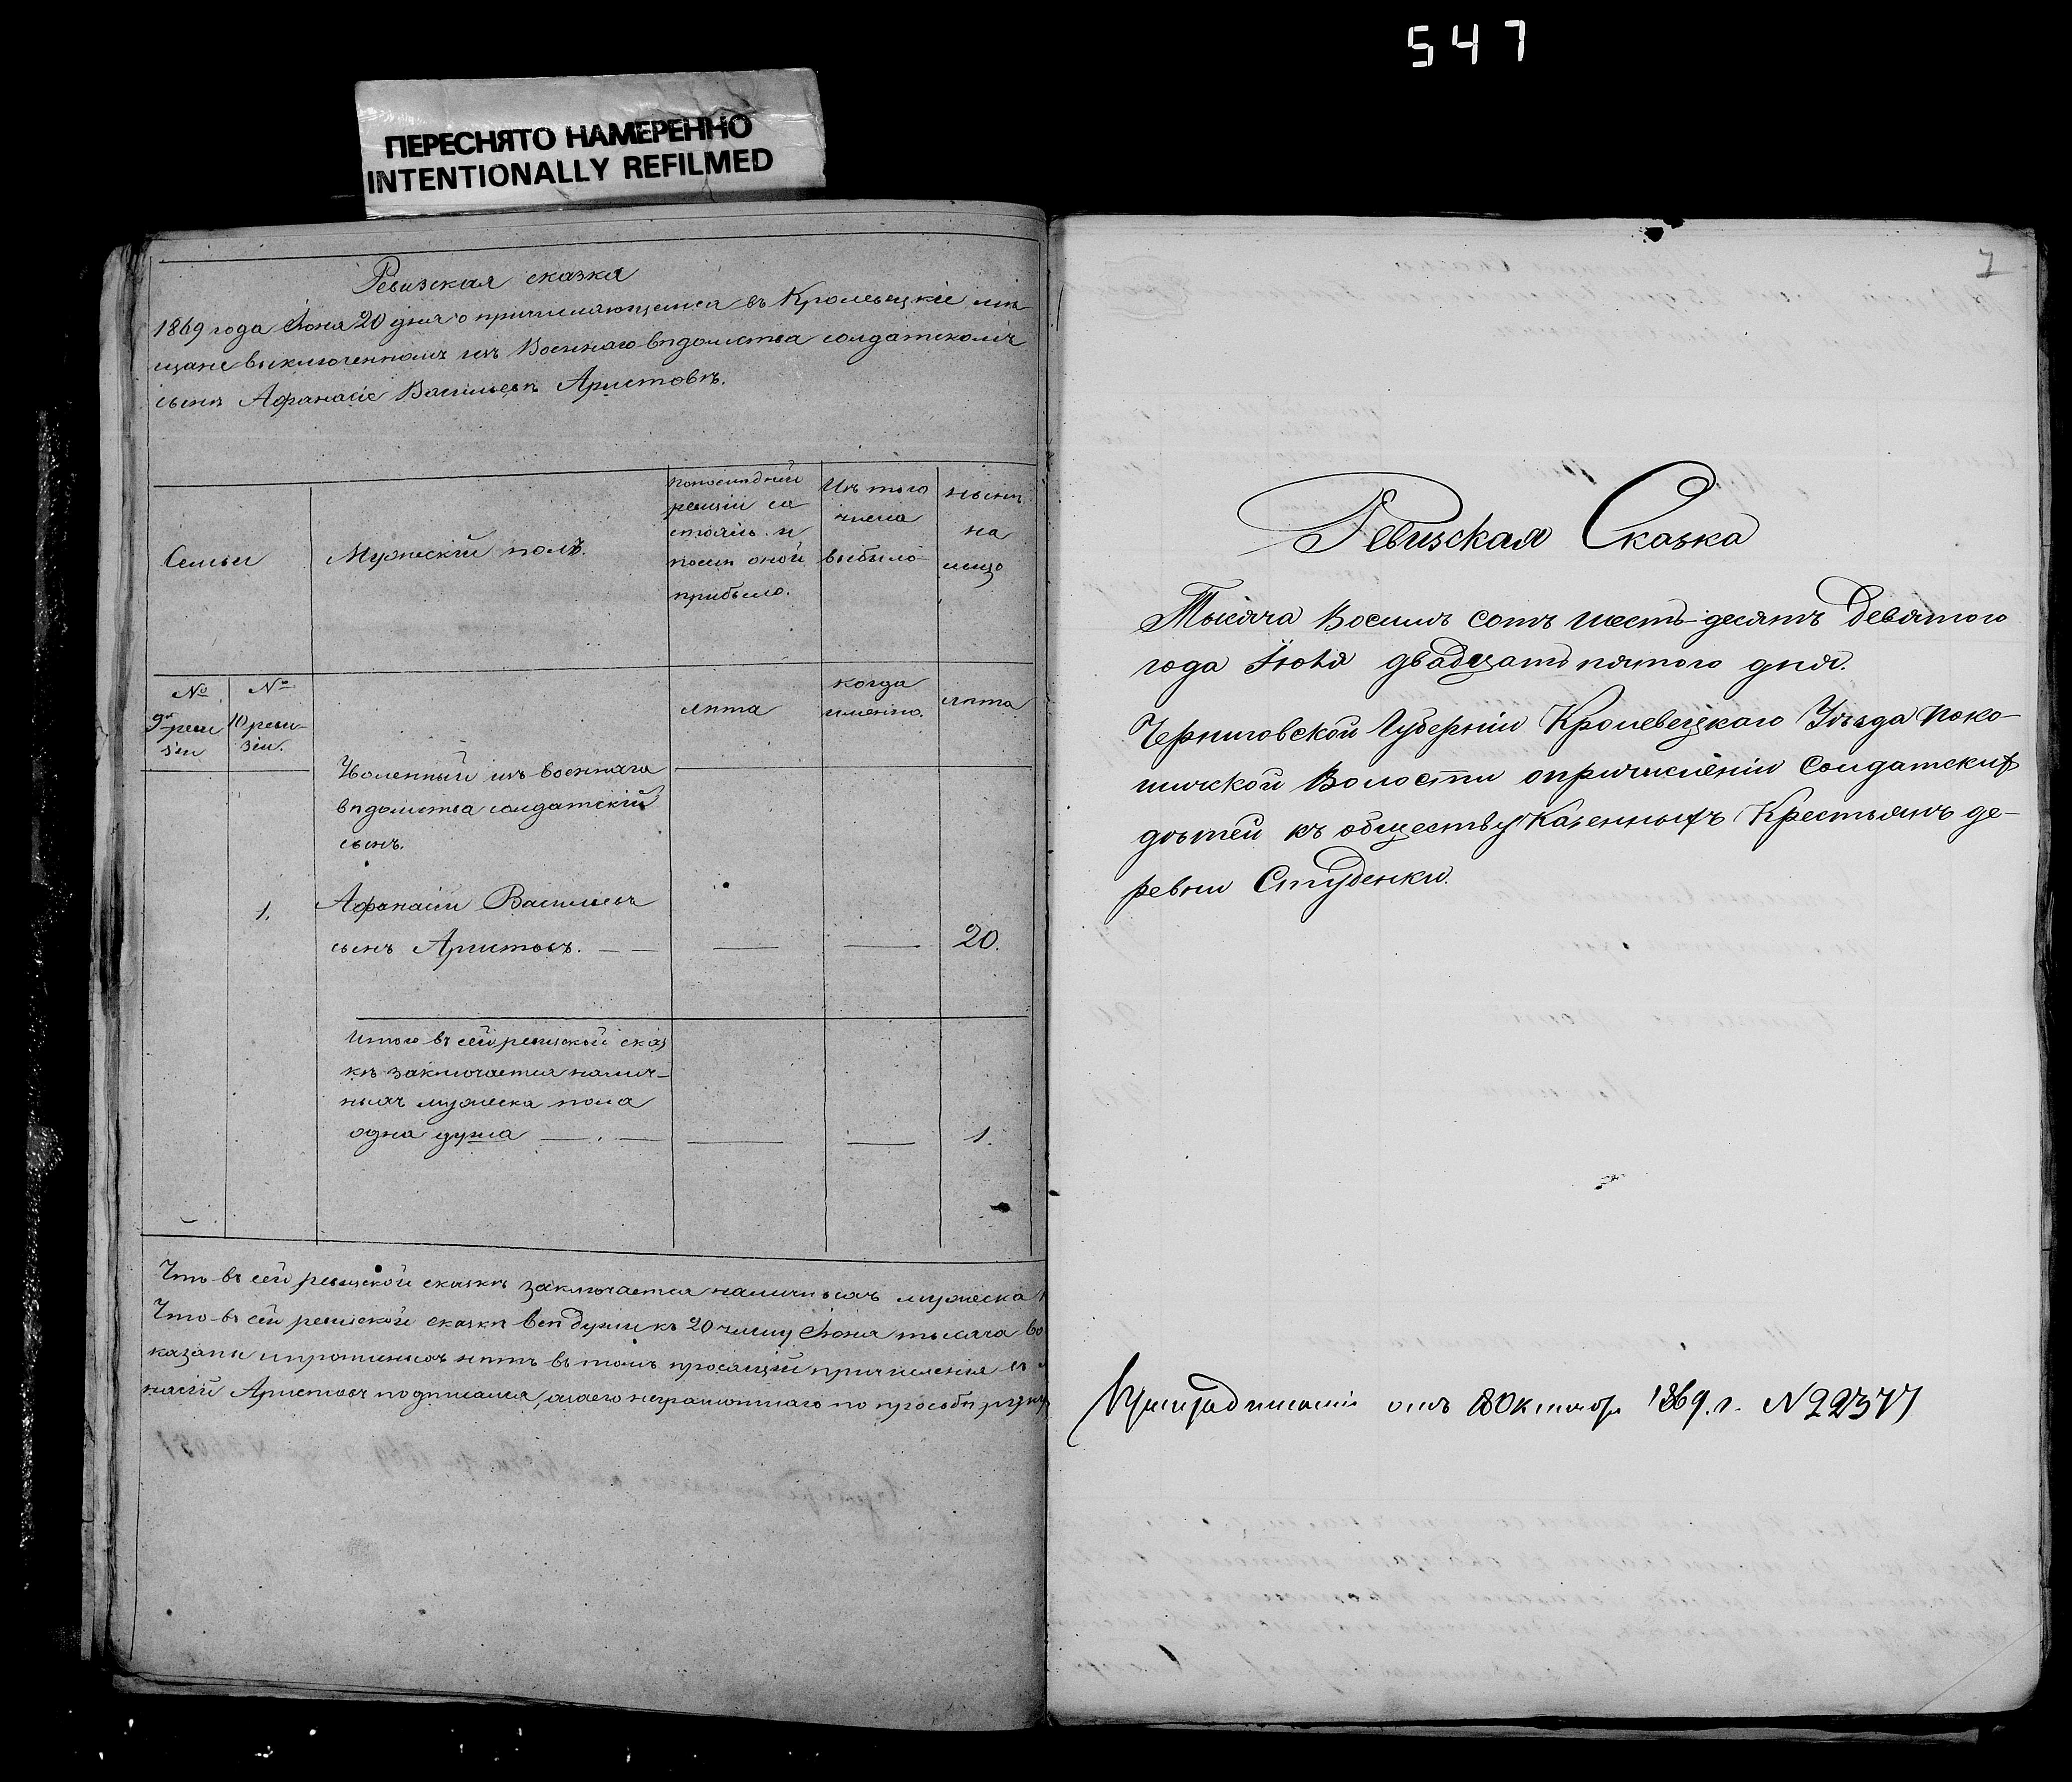 547
ПЕРЕСНЯТО НАМЕРЕННО
INTENTIONALLY REFILMED
Ревизская сказка
1869 года Июня 20 дня о причисляющемся въ Кролевецкіе мѣ
щане выключенномъ изъ Военнаго вѣдомства солдатскомъ
сынѣ Афанасіе Васильевѣ Аристовѣ.
Семьи
Мужескій полъ.
По последней
ревизіи со
стояло и
после оной
прибыло.
Изъ того
числа
выбыло
нынѣ
на
лицо
№
9й реви
зіи
№
10 реви-
зіи.
лѣта
когда
именно.
лѣта
Уволенный изъ военнаго
вѣдомства солдатскій
сынъ.
1.
Афанасій Васильевъ
сынъ Аристовъ. — —
—
—
20.
Итого въ сей ревизской сказ
кѣ заключается налич-
ныхъ мужеска пола
одна душа — . —
—
—
1.
Что въ сей ревизской сказкѣ заключается наличныхъ мужеска
Что въ сей ревизской сказкѣ всѣ души къ 20 числу Июня тысяча во
казаны и прописныхъ нѣтъ въ томъ просящій причисленія
насій Аристовъ подписался, а за его неграмотнаго по прозьбѣ
7
Ревизская Сказка
Тысяча Восемь сотъ шесть десятъ девятого
года Іюля двадцать пятого дня.
Черниговской Губерніи Кролевецкаго Уѣзда Поко-
шичской Волости о причисленіи Солдатскихъ
дѣтей къ обществу Казенныхъ Крестьянъ де-
ревни Студенки.
При предписаніи отъ 8 Октябр. 1869. г. N 22377